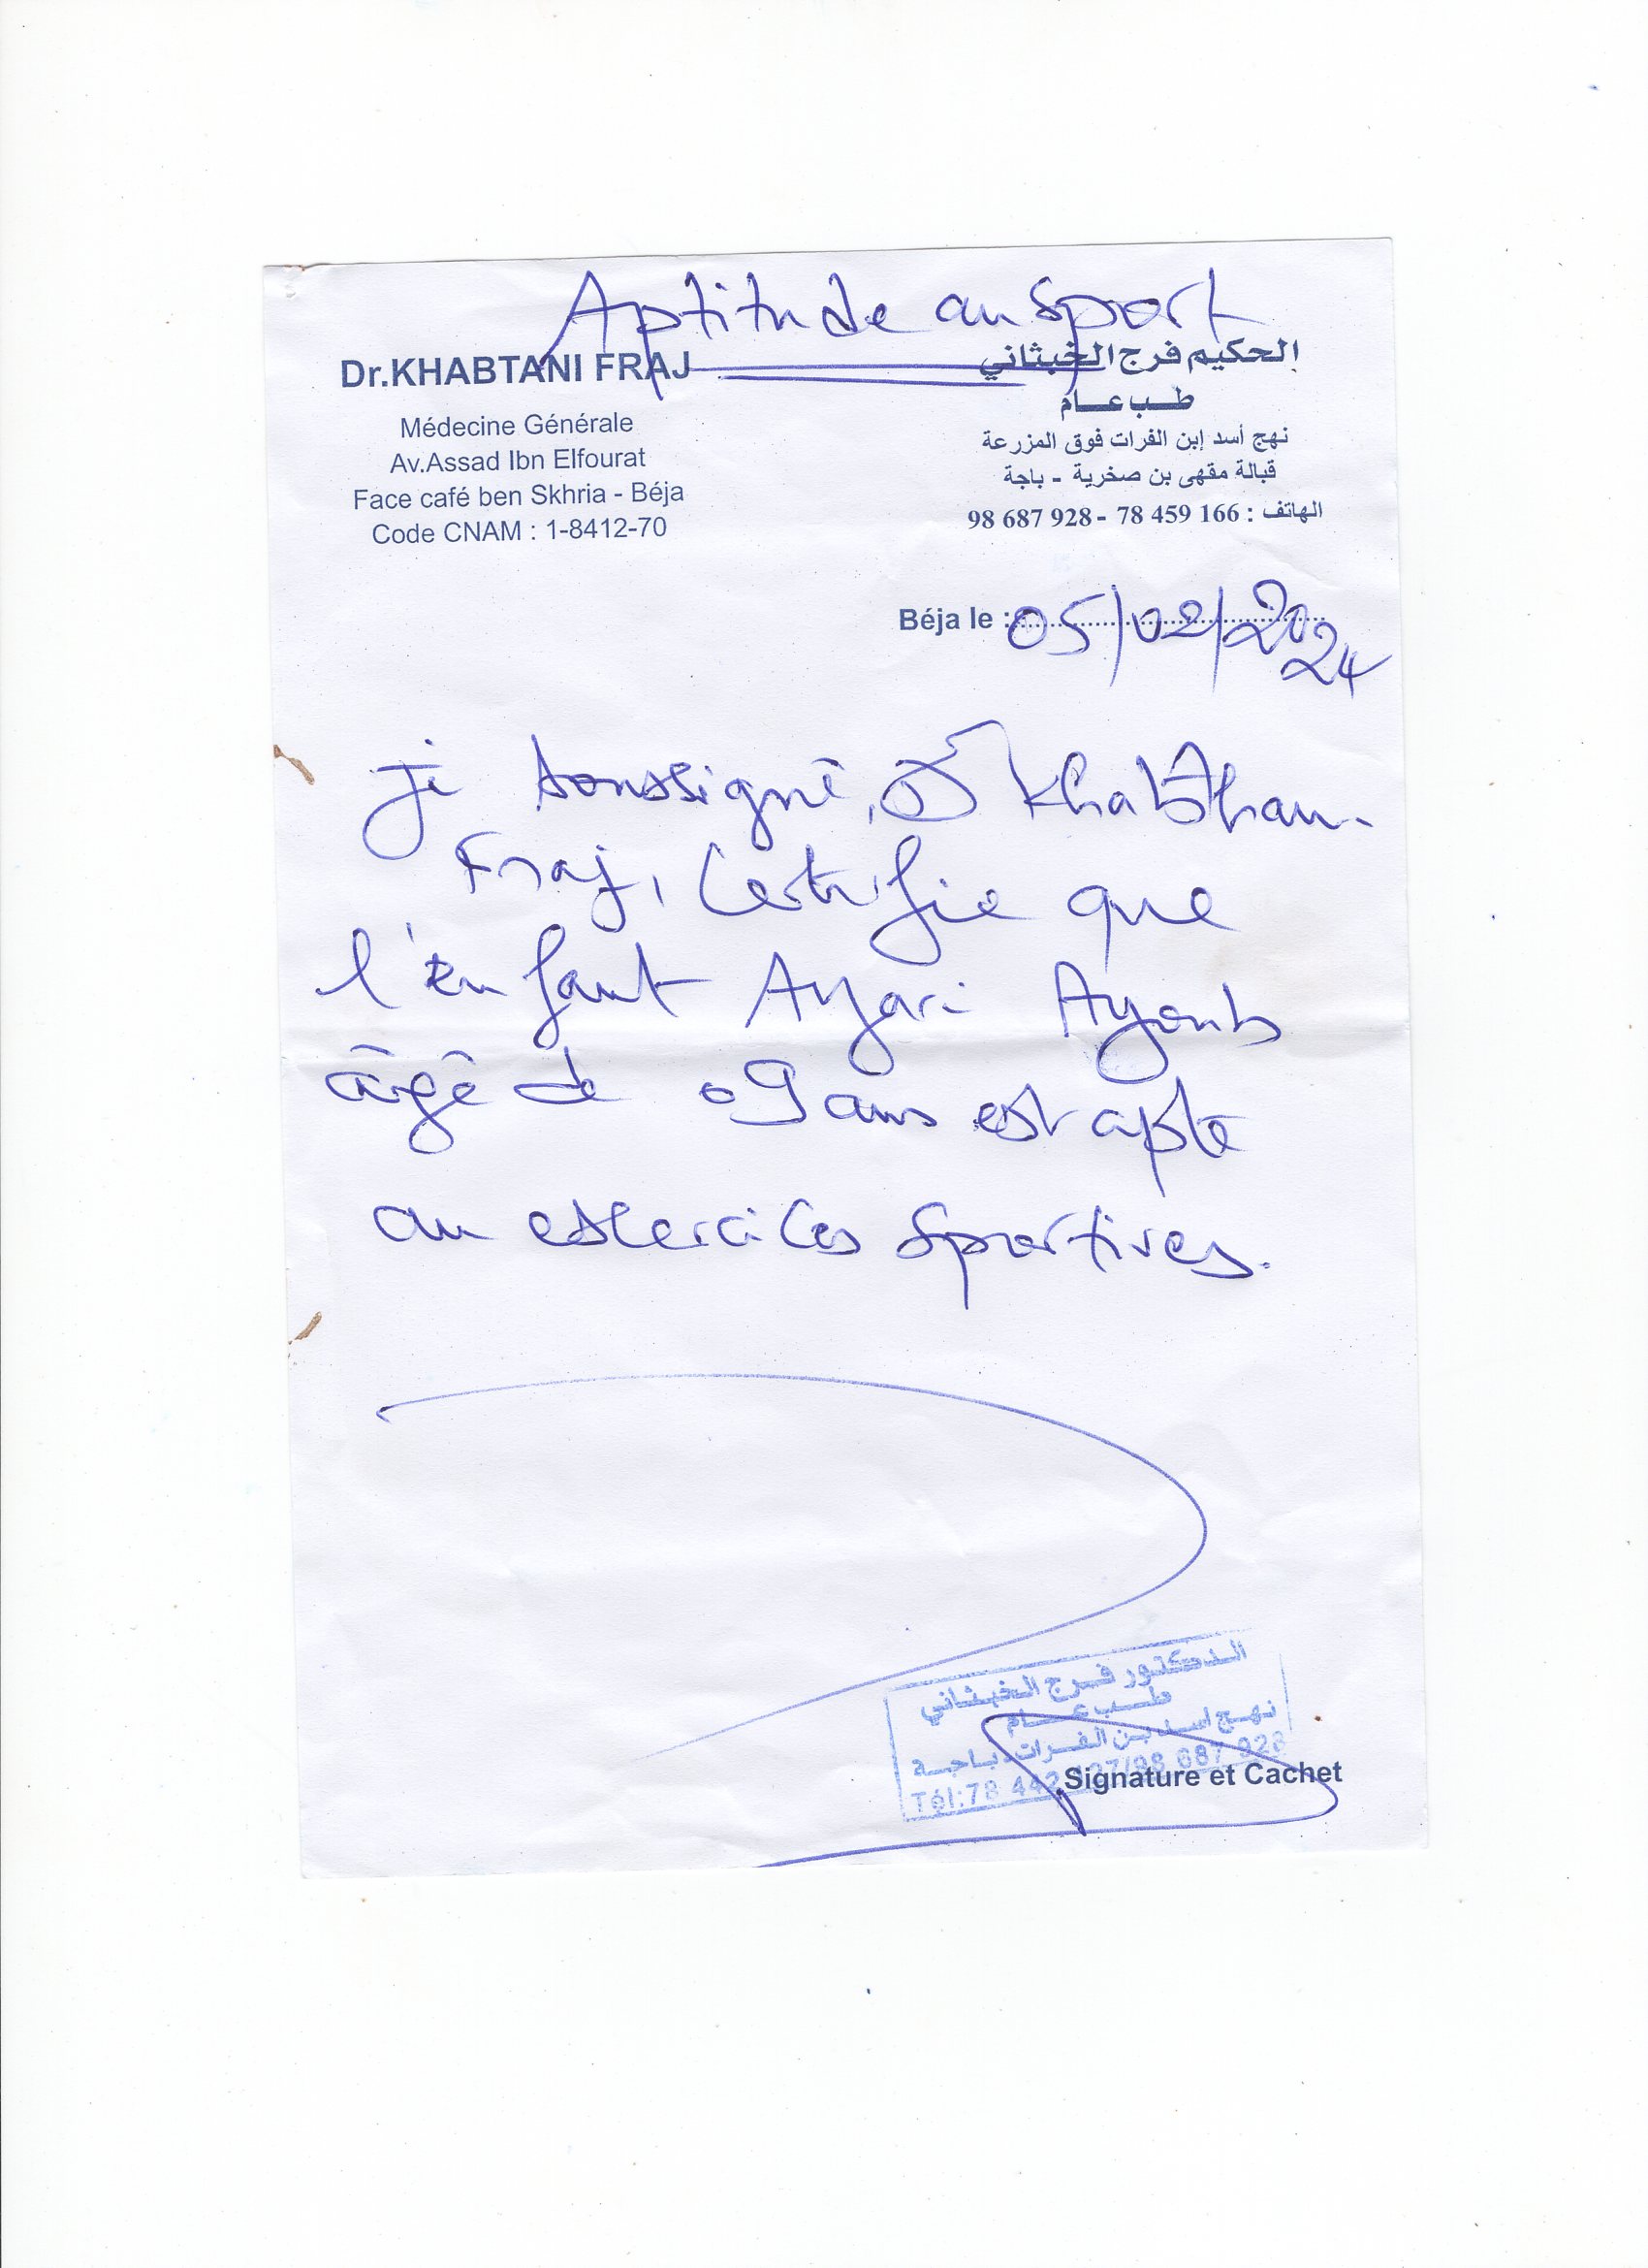 Aptitude au sport
Dr.KHABTANI FRAJ
Médecine Générale
Av.Assad Ibn Elfourat
Face café ben Skhria - Béja
Code CNAM : 1-8412-70
الحكيم فرج الخبثاني
طب عام
نهج أسد إبن الفرات فوق المزرعة
قبالة مقهى بن صخرية - باجة
الهاتف : 166 459 78 - 928 687 98
Béja le : 05/02/2024
je soussigné, Dr Khabthani
Fraj, Certifie que
l'enfant Ayari Ayoub
âgé de 09 ans est apte
au exercices sportives.
الدكتور فرج الخبثاني
طب عام
نهج أسد بن الفرات باجة
Tél:78 442 /98 687 928
Signature et Cachet